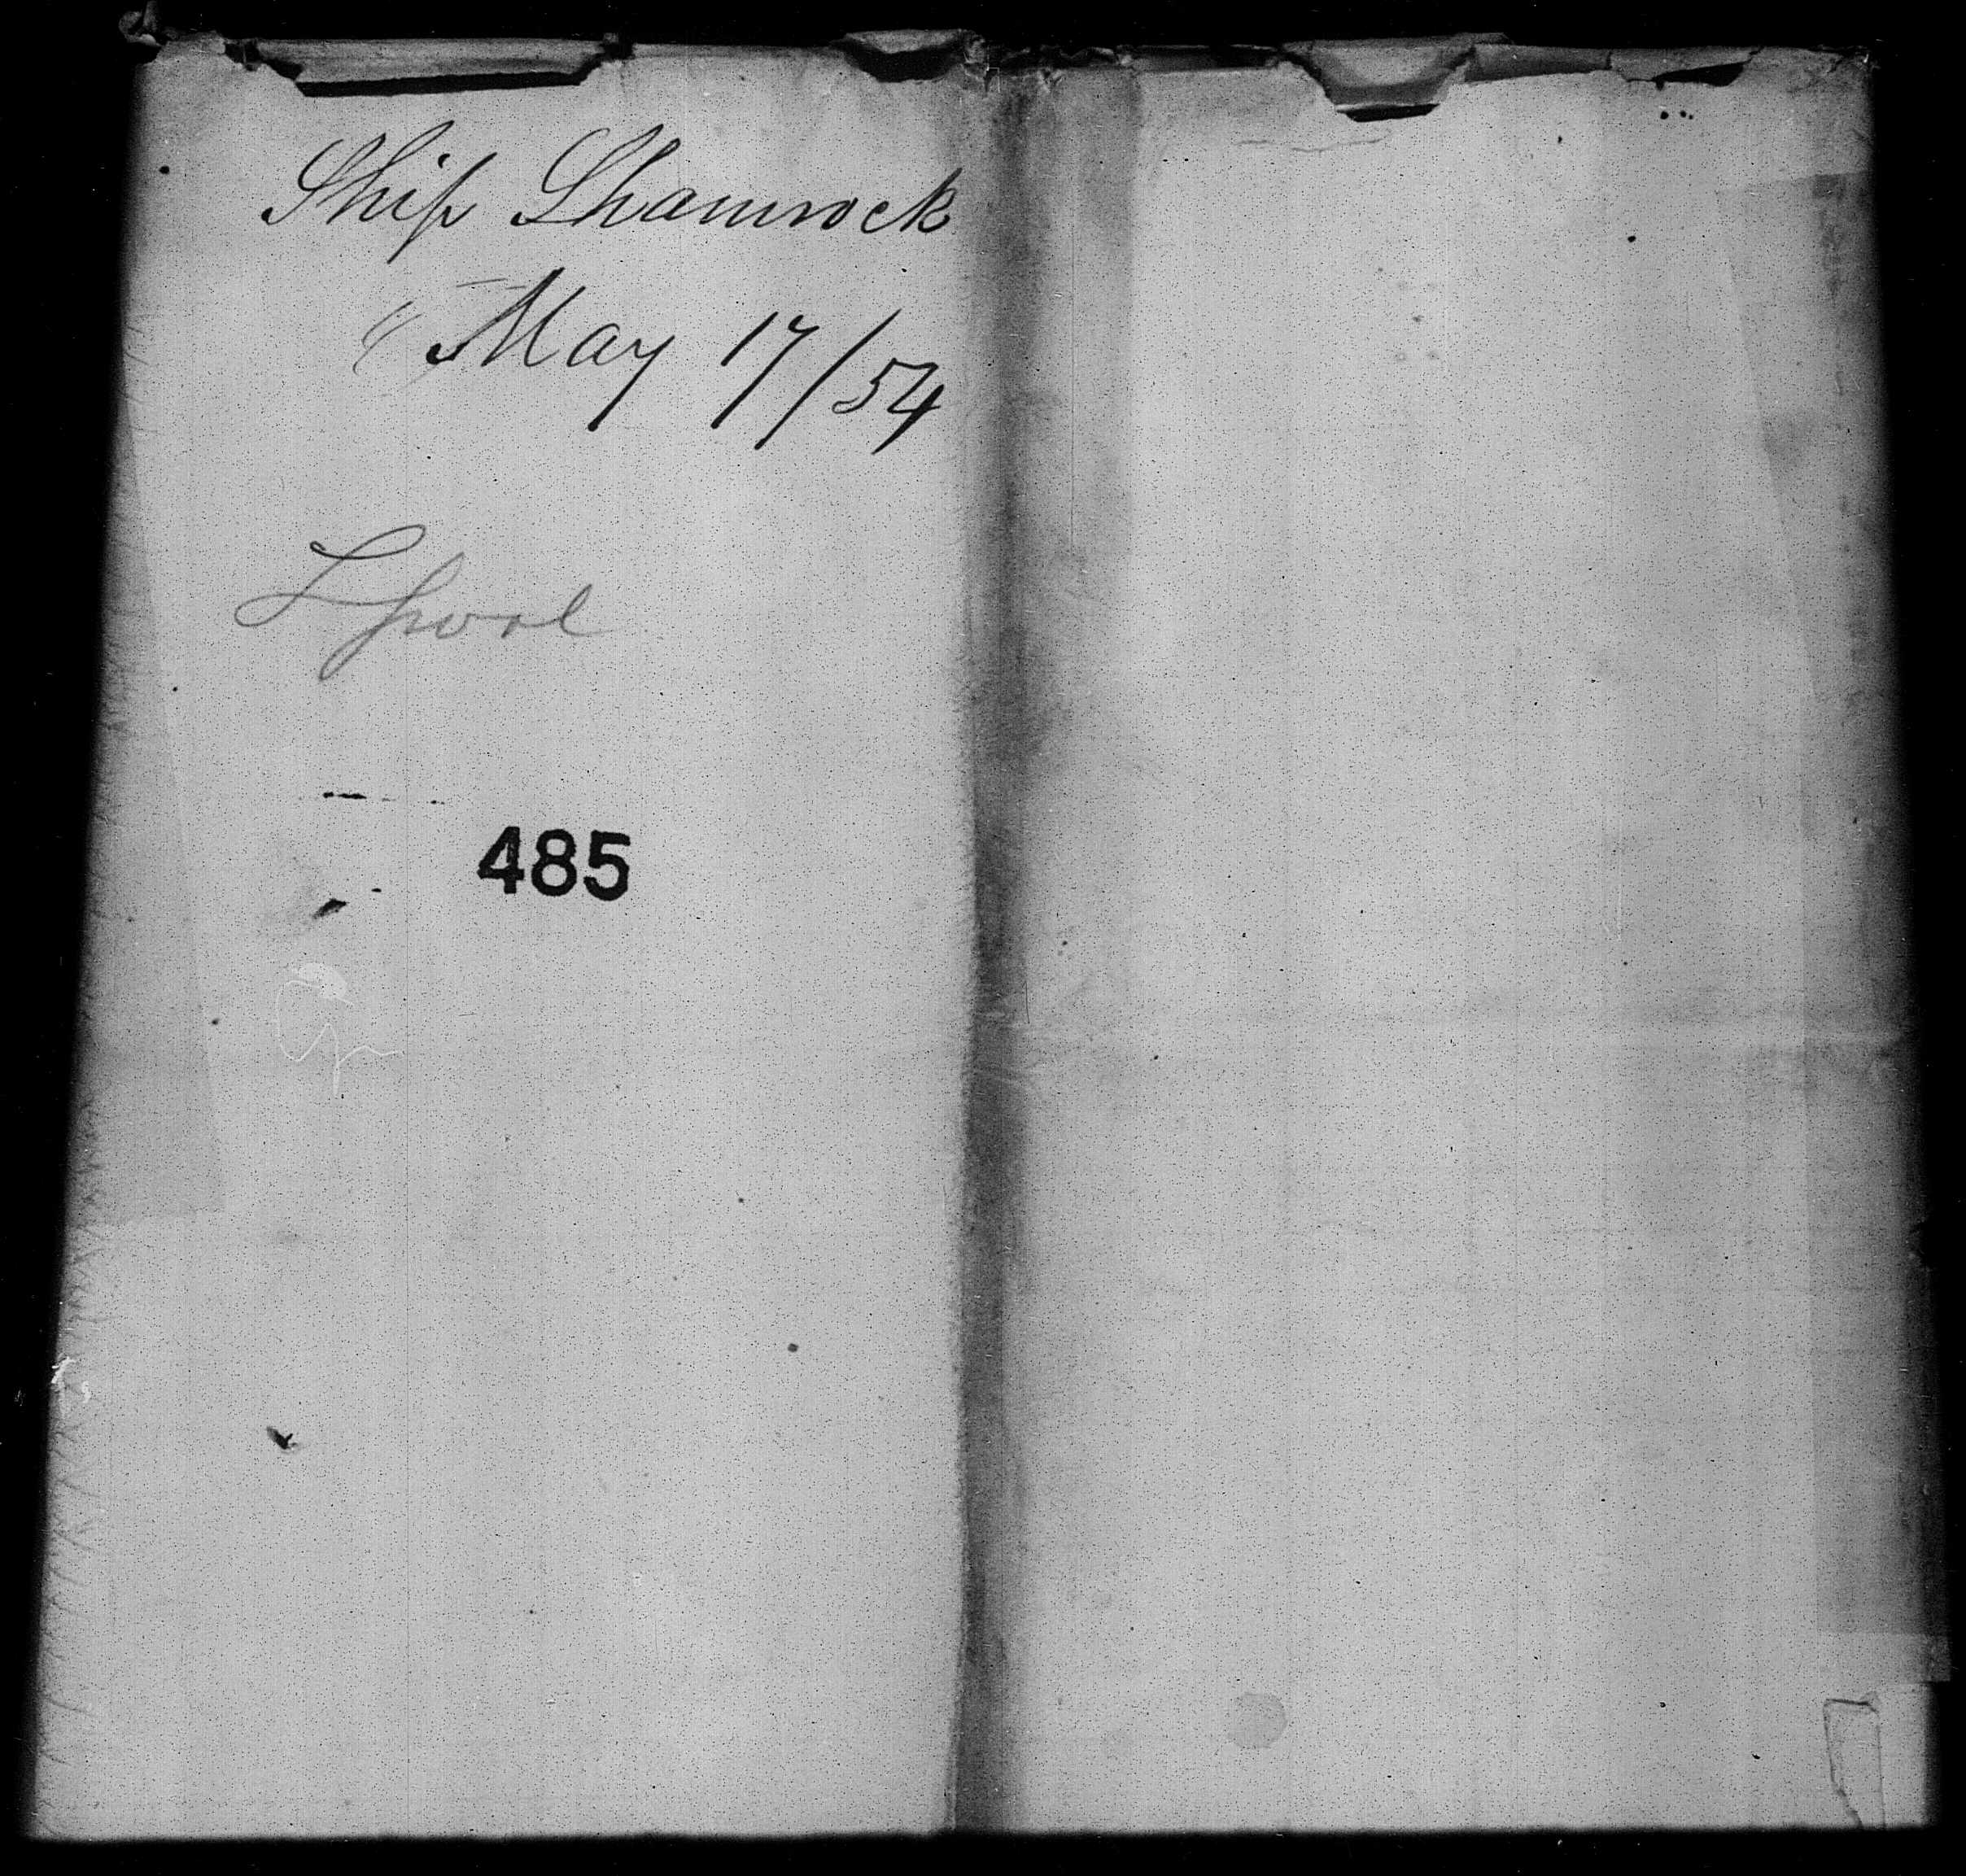 Ship Shamrock
" May 17/54
Lpool
485